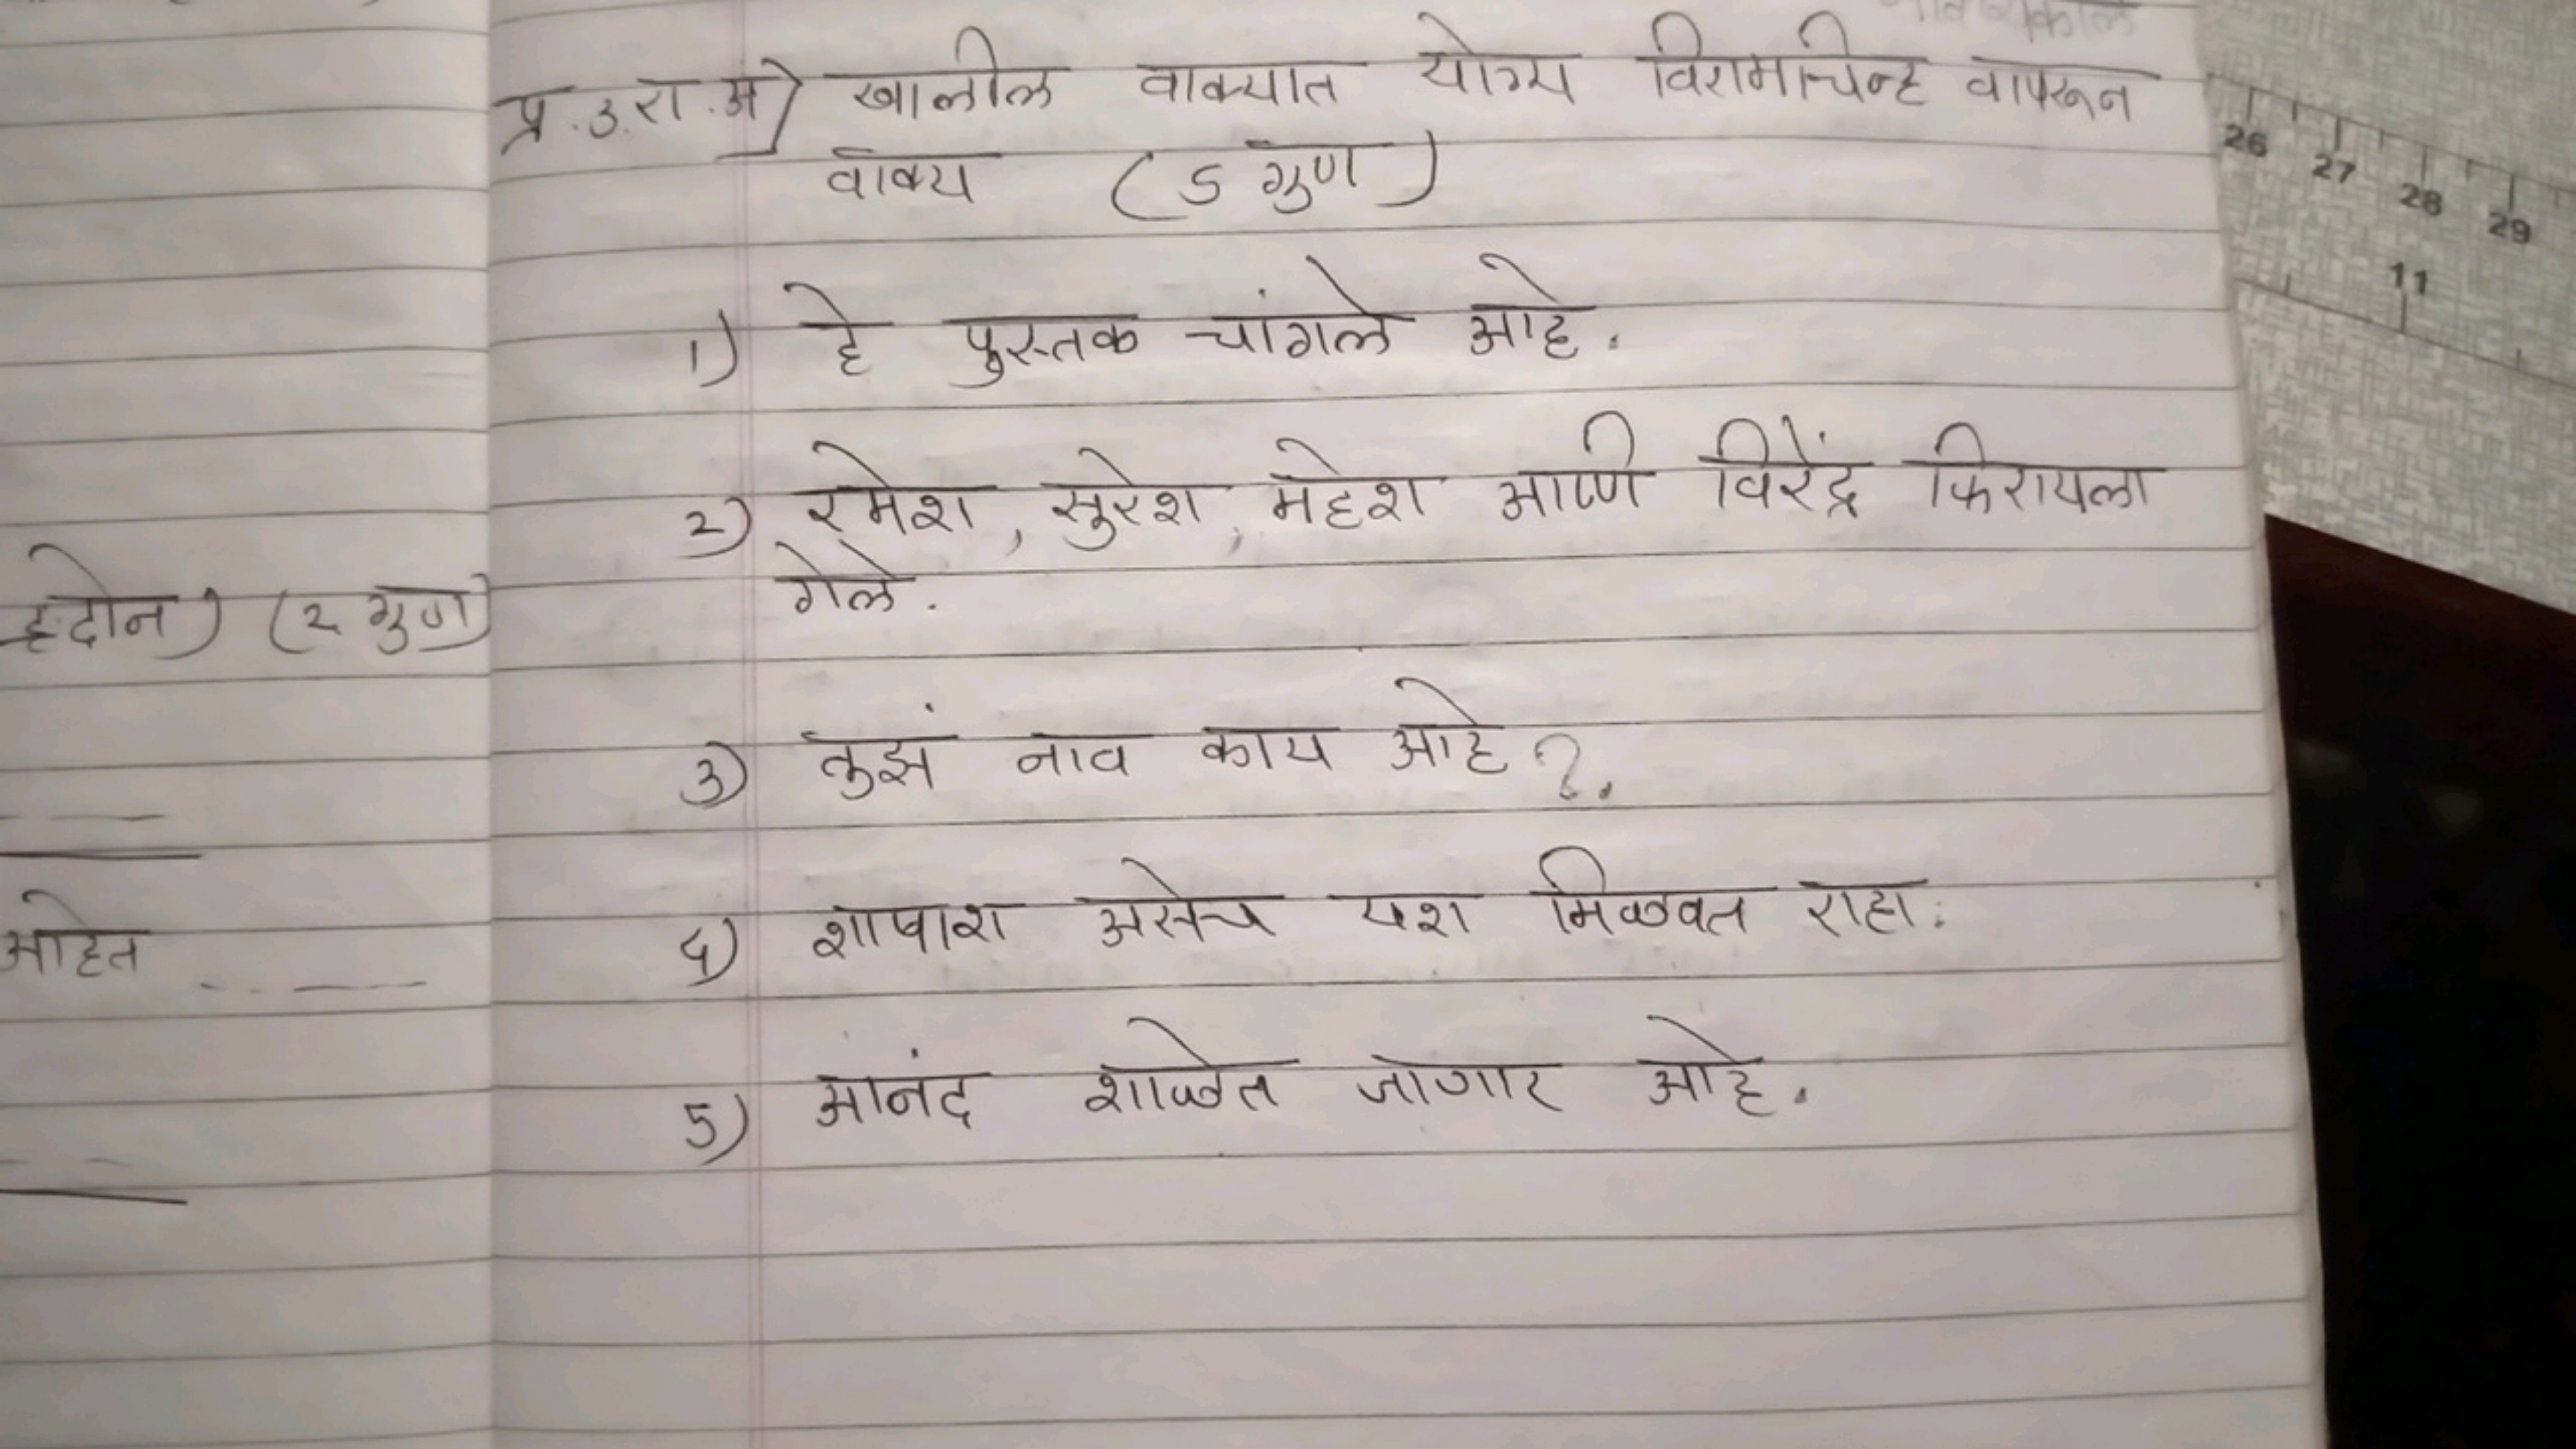 प्र.3.रा.अ) खालील वाक्यात योग्य विरामचिन्ह वापरून
वाक्य (5 गुण)
1) हे पुस्तक चांगले आहे.
2) रमेश, सुरेश, महेश आणि विरेंद्र फिरायला
गेले.
हदोन) (2 गुण)
3) तुझं नाव काय आहे?.
4) शाबाश असेच यश मिळवत राहा.
आहेत
5) आनंद शाळेत जाणार आहे.
26 27 28 29
11